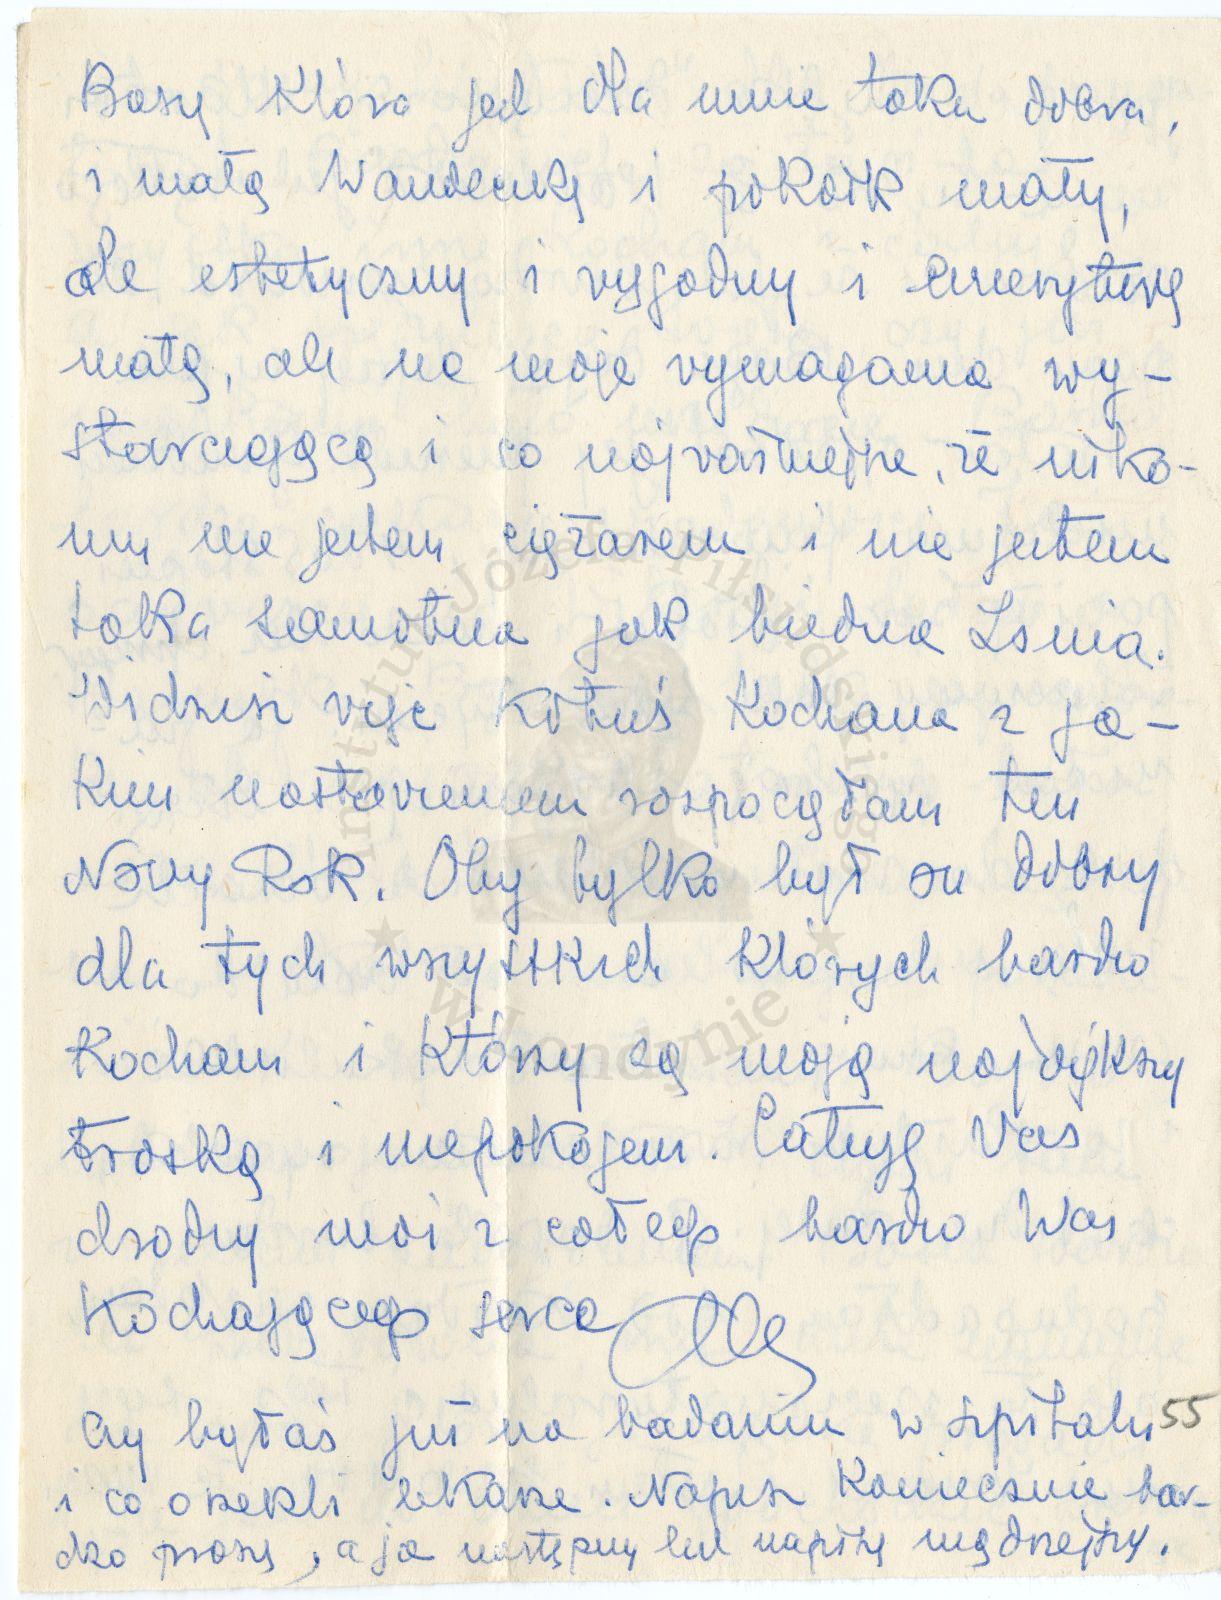 Basię która jest dla mnie taka dobra,
i małą Wandeczkę i pokoik mały,
ale estetyczny i wygodny i emeryturę
małą, ale na moje wymagania wy-
starczającą i co najważniejsze, że niko-
mu nie jestem ciężarem i nie jestem
taka samotna jak biedna Lsnia.
Widzisz więc Kotuś Kochana z ja-
kim nastawieniem rozpoczęłam ten
Nowy Rok. Oby tylko był on dobry
dla tych wszystkich których bardzo
Kocham i którzy są moją największą
troską i niepokojem. Całuję Was
drodzy moi z całego bardzo Was
Kochającego serca
Czy byłaś już na badaniu w szpitalu 55
i co orzekli lekarze. Napisz Koniecznie bar-
dzo proszę, a ja następny list napiszę mądrzejszy.
Instytut Józefa Piłsudskiego
w Londynie